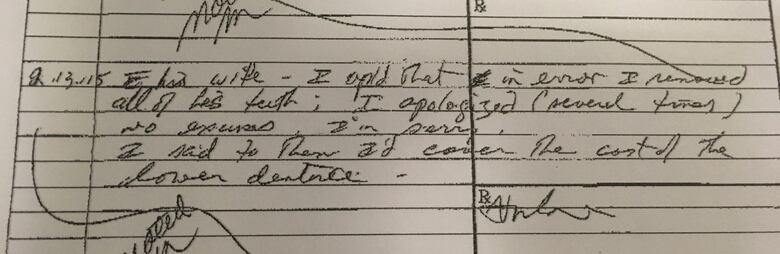 moved
in
Rx
2.13.15 I his wife - I expl'd that in error I removed
all of his teeth; I apologized (several times)
no excuses, I'm sorry.
I said to them I'd cover the cost of the
lower denture -
Rx
moved
in